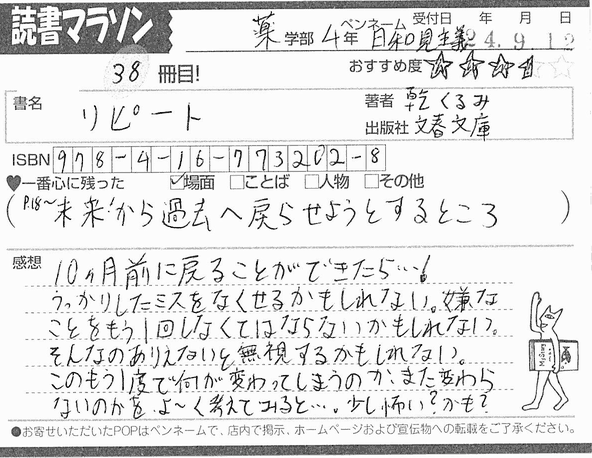 読書マラソン
薬 学部 4 年 ペンネーム 日和見主義 受付日 年 月 日 24.9.12
38 冊目! おすすめ度 ☆☆☆☆☆
書名 リピート 著者 乾くるみ
出版社 文春文庫
ISBN 978-4-16-773202-8
♥一番心に残った ☑場面 □ことば □人物 □その他
(P.18～未来から過去へ戻らせようとするところ)
感想 10ヵ月前に戻ることができたら…!
うっかりしたミスをなくせるかもしれない。嫌な
ことをもう1回しなくてはならないかもしれない。
そんなのありえないと無視するかもしれない。
このもう1度で何が変わってしまうのか、また変わら
ないのかを、よ～く考えてみると…。少し怖い?かも?
●お寄せいただいたPOPはペンネームで、店内で掲示、ホームページおよび宣伝物への転載をご了承ください。